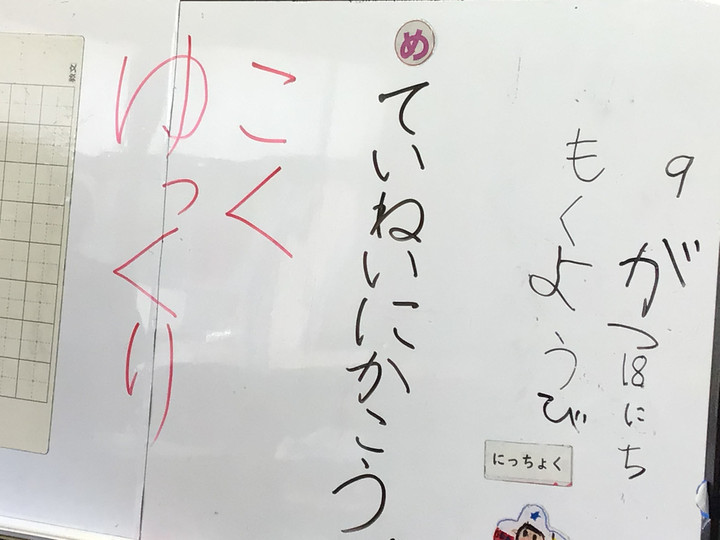 9がつ18にち
もくようび
にっちょく
め
ていねいにかこう
こく
ゆっくり